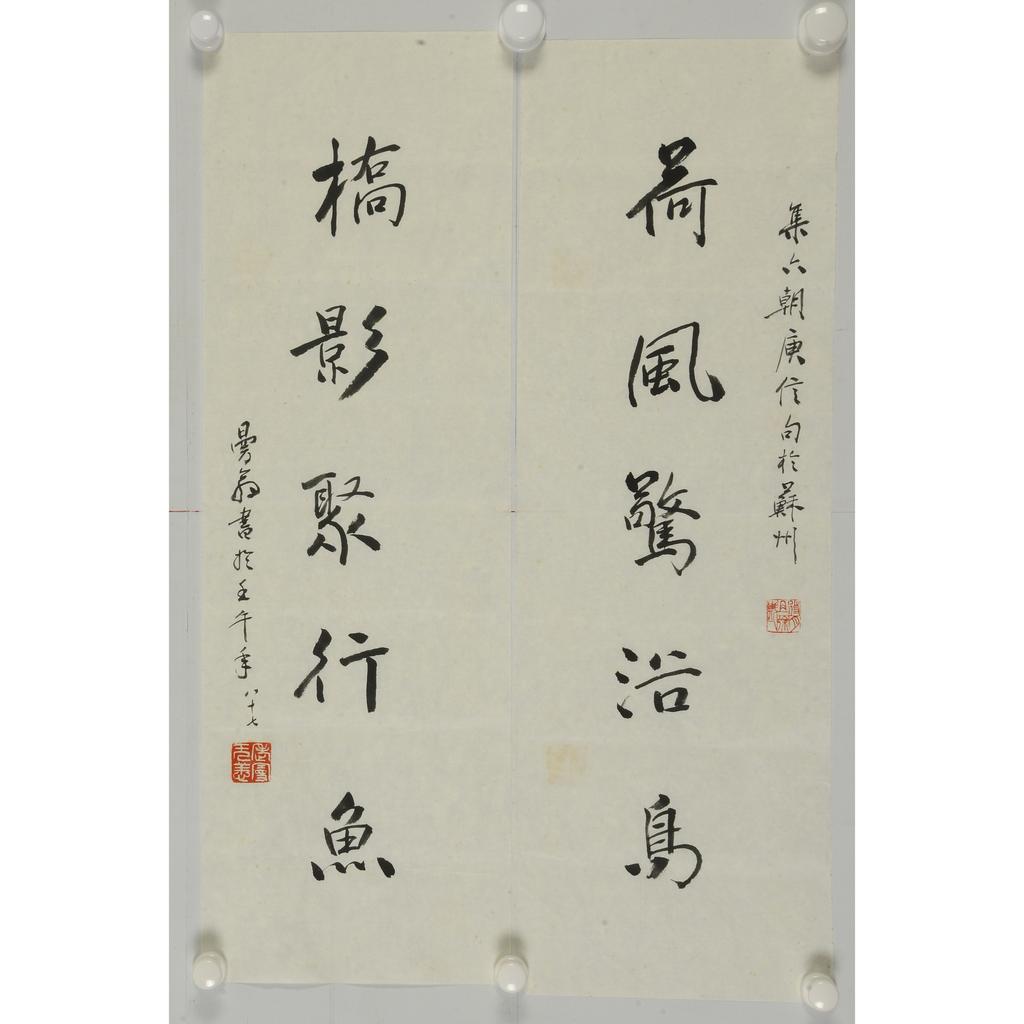 集六朝庾信句於蘇州
荷風驚浴鳥
橋影聚行魚
曼翁書於壬午年八十七